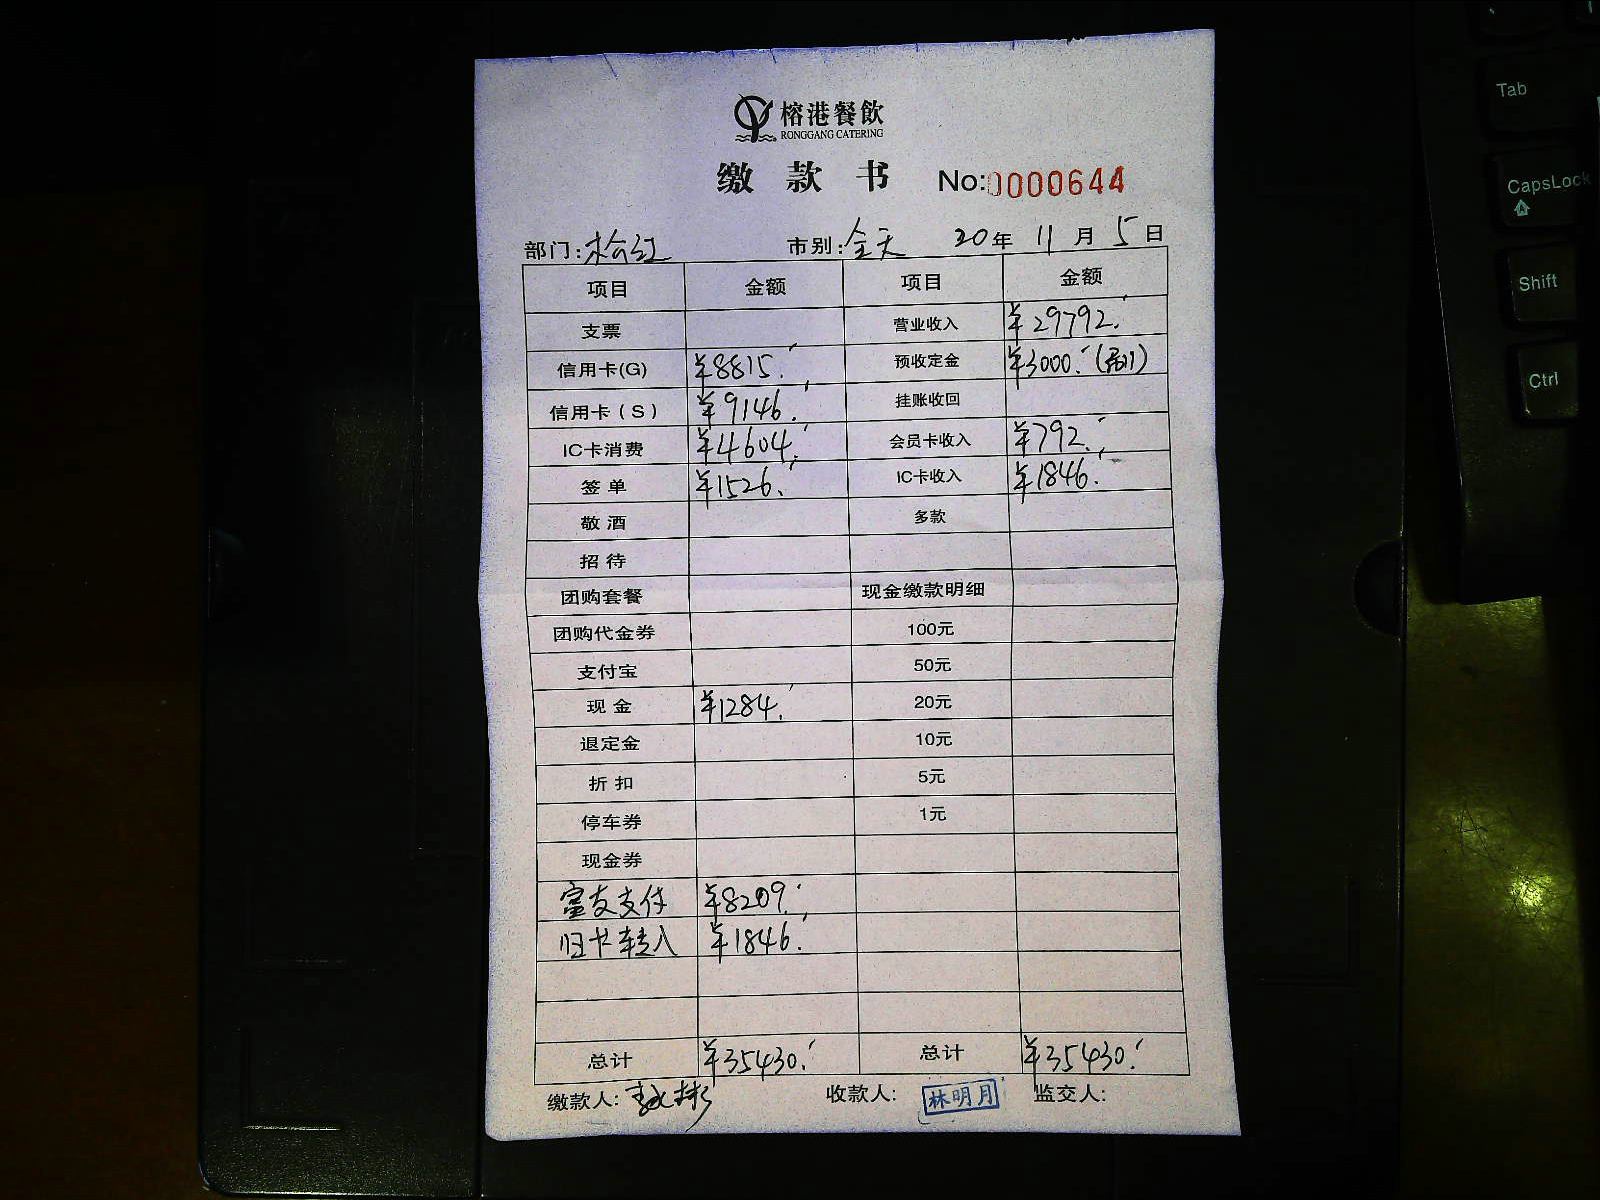 榕港餐飲
RONGGANG CATERING
缴款书 No:0000644
部门: 市别:全天 20年 11月 5日
项目 金额 项目 金额
支票 营业收入 ¥29792.
信用卡(G) ¥8815. 预收定金 ¥3000.
信用卡（S） ¥9146. 挂账收回
IC卡消费 ¥4604. 会员卡收入 ¥792.
签单 ¥1526. IC卡收入 ¥1846.
敬酒 多款
招待
团购套餐 现金缴款明细
团购代金券 100元
支付宝 50元
现金 ¥1284. 20元
退定金 10元
折扣 5元
停车券 1元
现金券
富友支付 ¥8209.
旧卡转入 ¥1846.
总计 ¥35430. 总计 ¥35430.
缴款人: 收款人: 林明月 监交人:
Tab
CapsLock
Shift
Ctrl